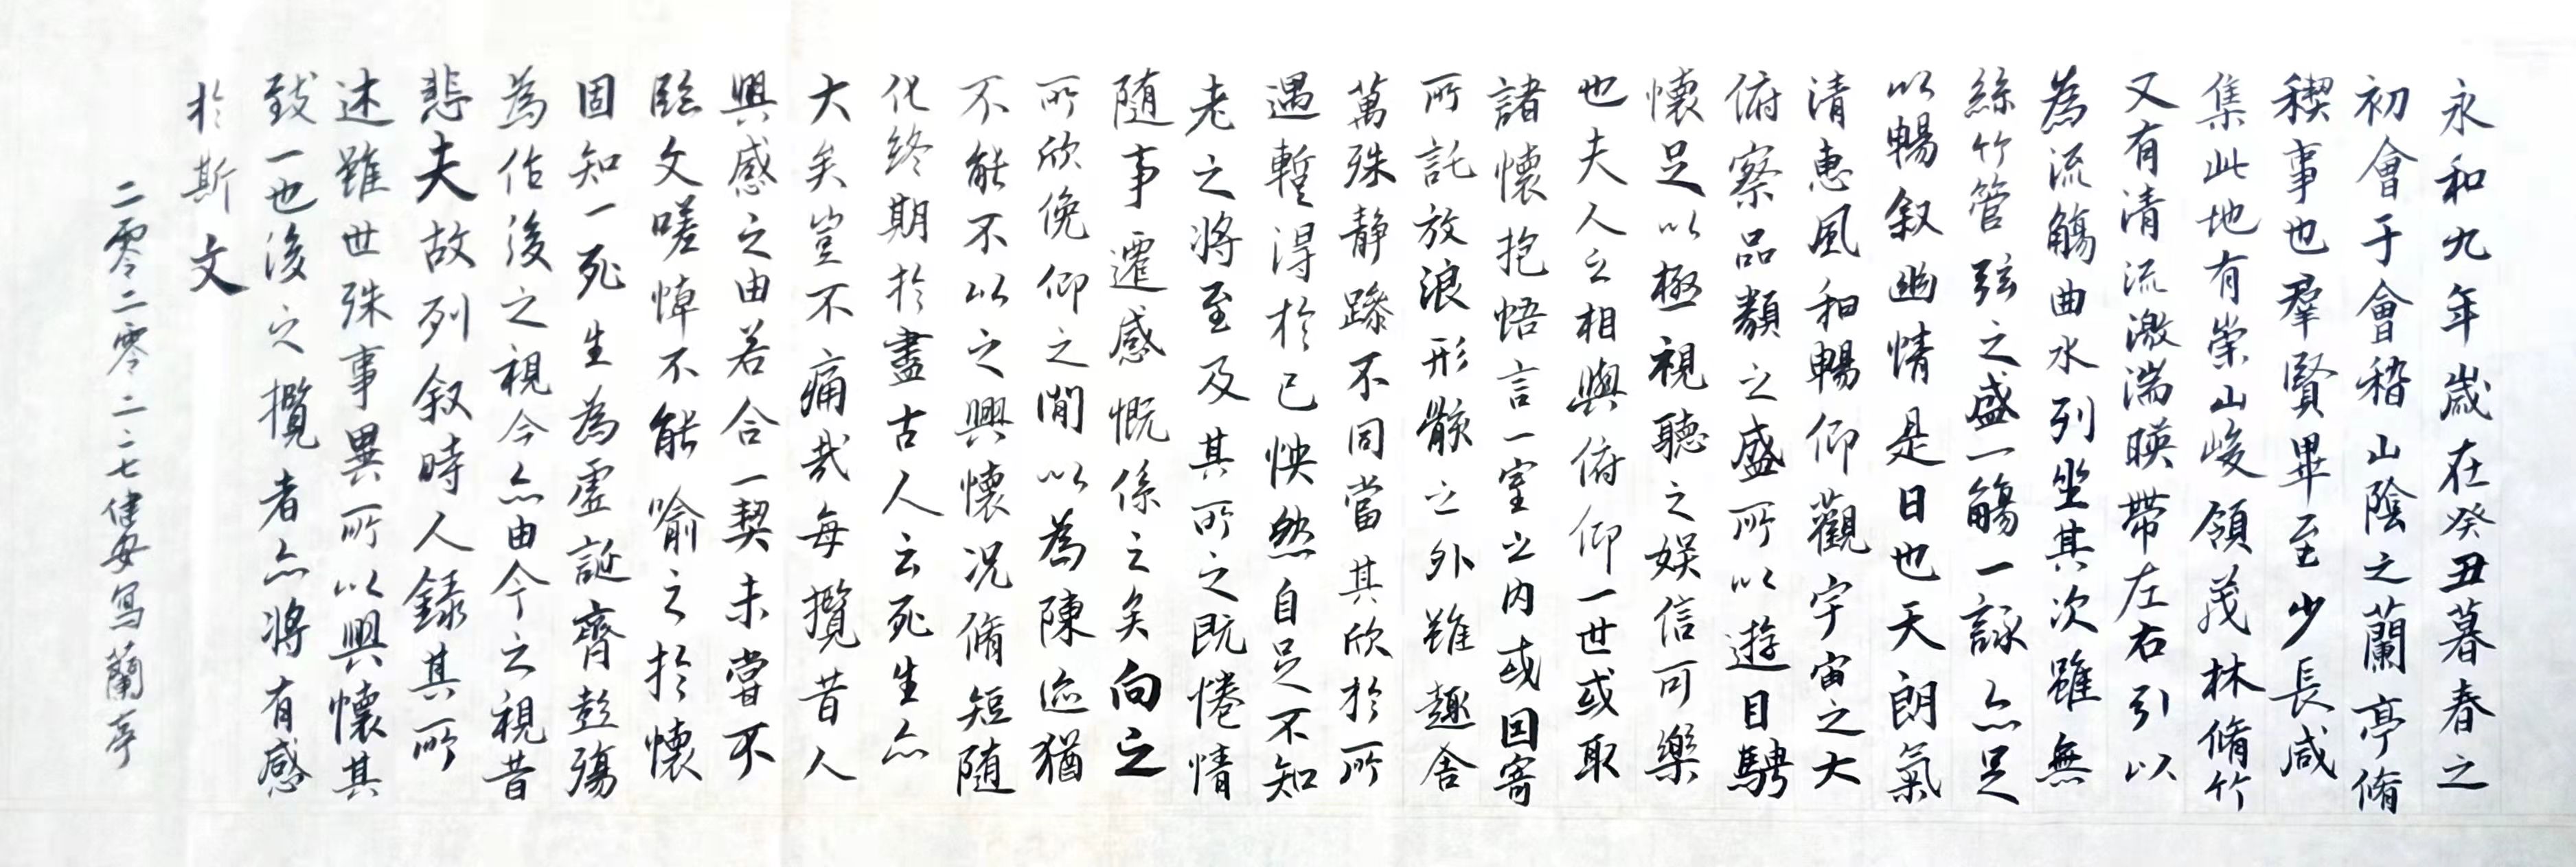 永和九年歲在癸丑暮春之
初會于會稽山陰之蘭亭脩
稧事也羣賢畢至少長咸
集此地有崇山峻領茂林脩竹
又有清流激湍暎帶左右引以
為流觴曲水列坐其次雖無
絲竹管弦之盛一觴一詠亦足
以暢叙幽情是日也天朗氣
清惠風和暢仰觀宇宙之大
俯察品類之盛所以遊目騁
懷足以極視聽之娛信可樂
也夫人之相與俯仰一世或取
諸懷抱悟言一室之內或因寄
所託放浪形骸之外雖趣舍
萬殊静躁不同當其欣於所
遇蹔得於己怏然自足不知
老之將至及其所之既惓情
隨事遷感慨係之矣向之
所欣俛仰之閒以為陳迹猶
不能不以之興懷况脩短隨
化終期於盡古人云死生亦
大矣豈不痛哉每攬昔人
興感之由若合一契未嘗不
臨文嗟悼不能喻之於懷
固知一死生為虛誕齊彭殤
為作後之視今亦由今之視昔
悲夫故列叙時人錄其所
述雖世殊事異所以興懷其
致一也後之攬者亦將有感
於斯文
二零二零二二七健安写蘭亭